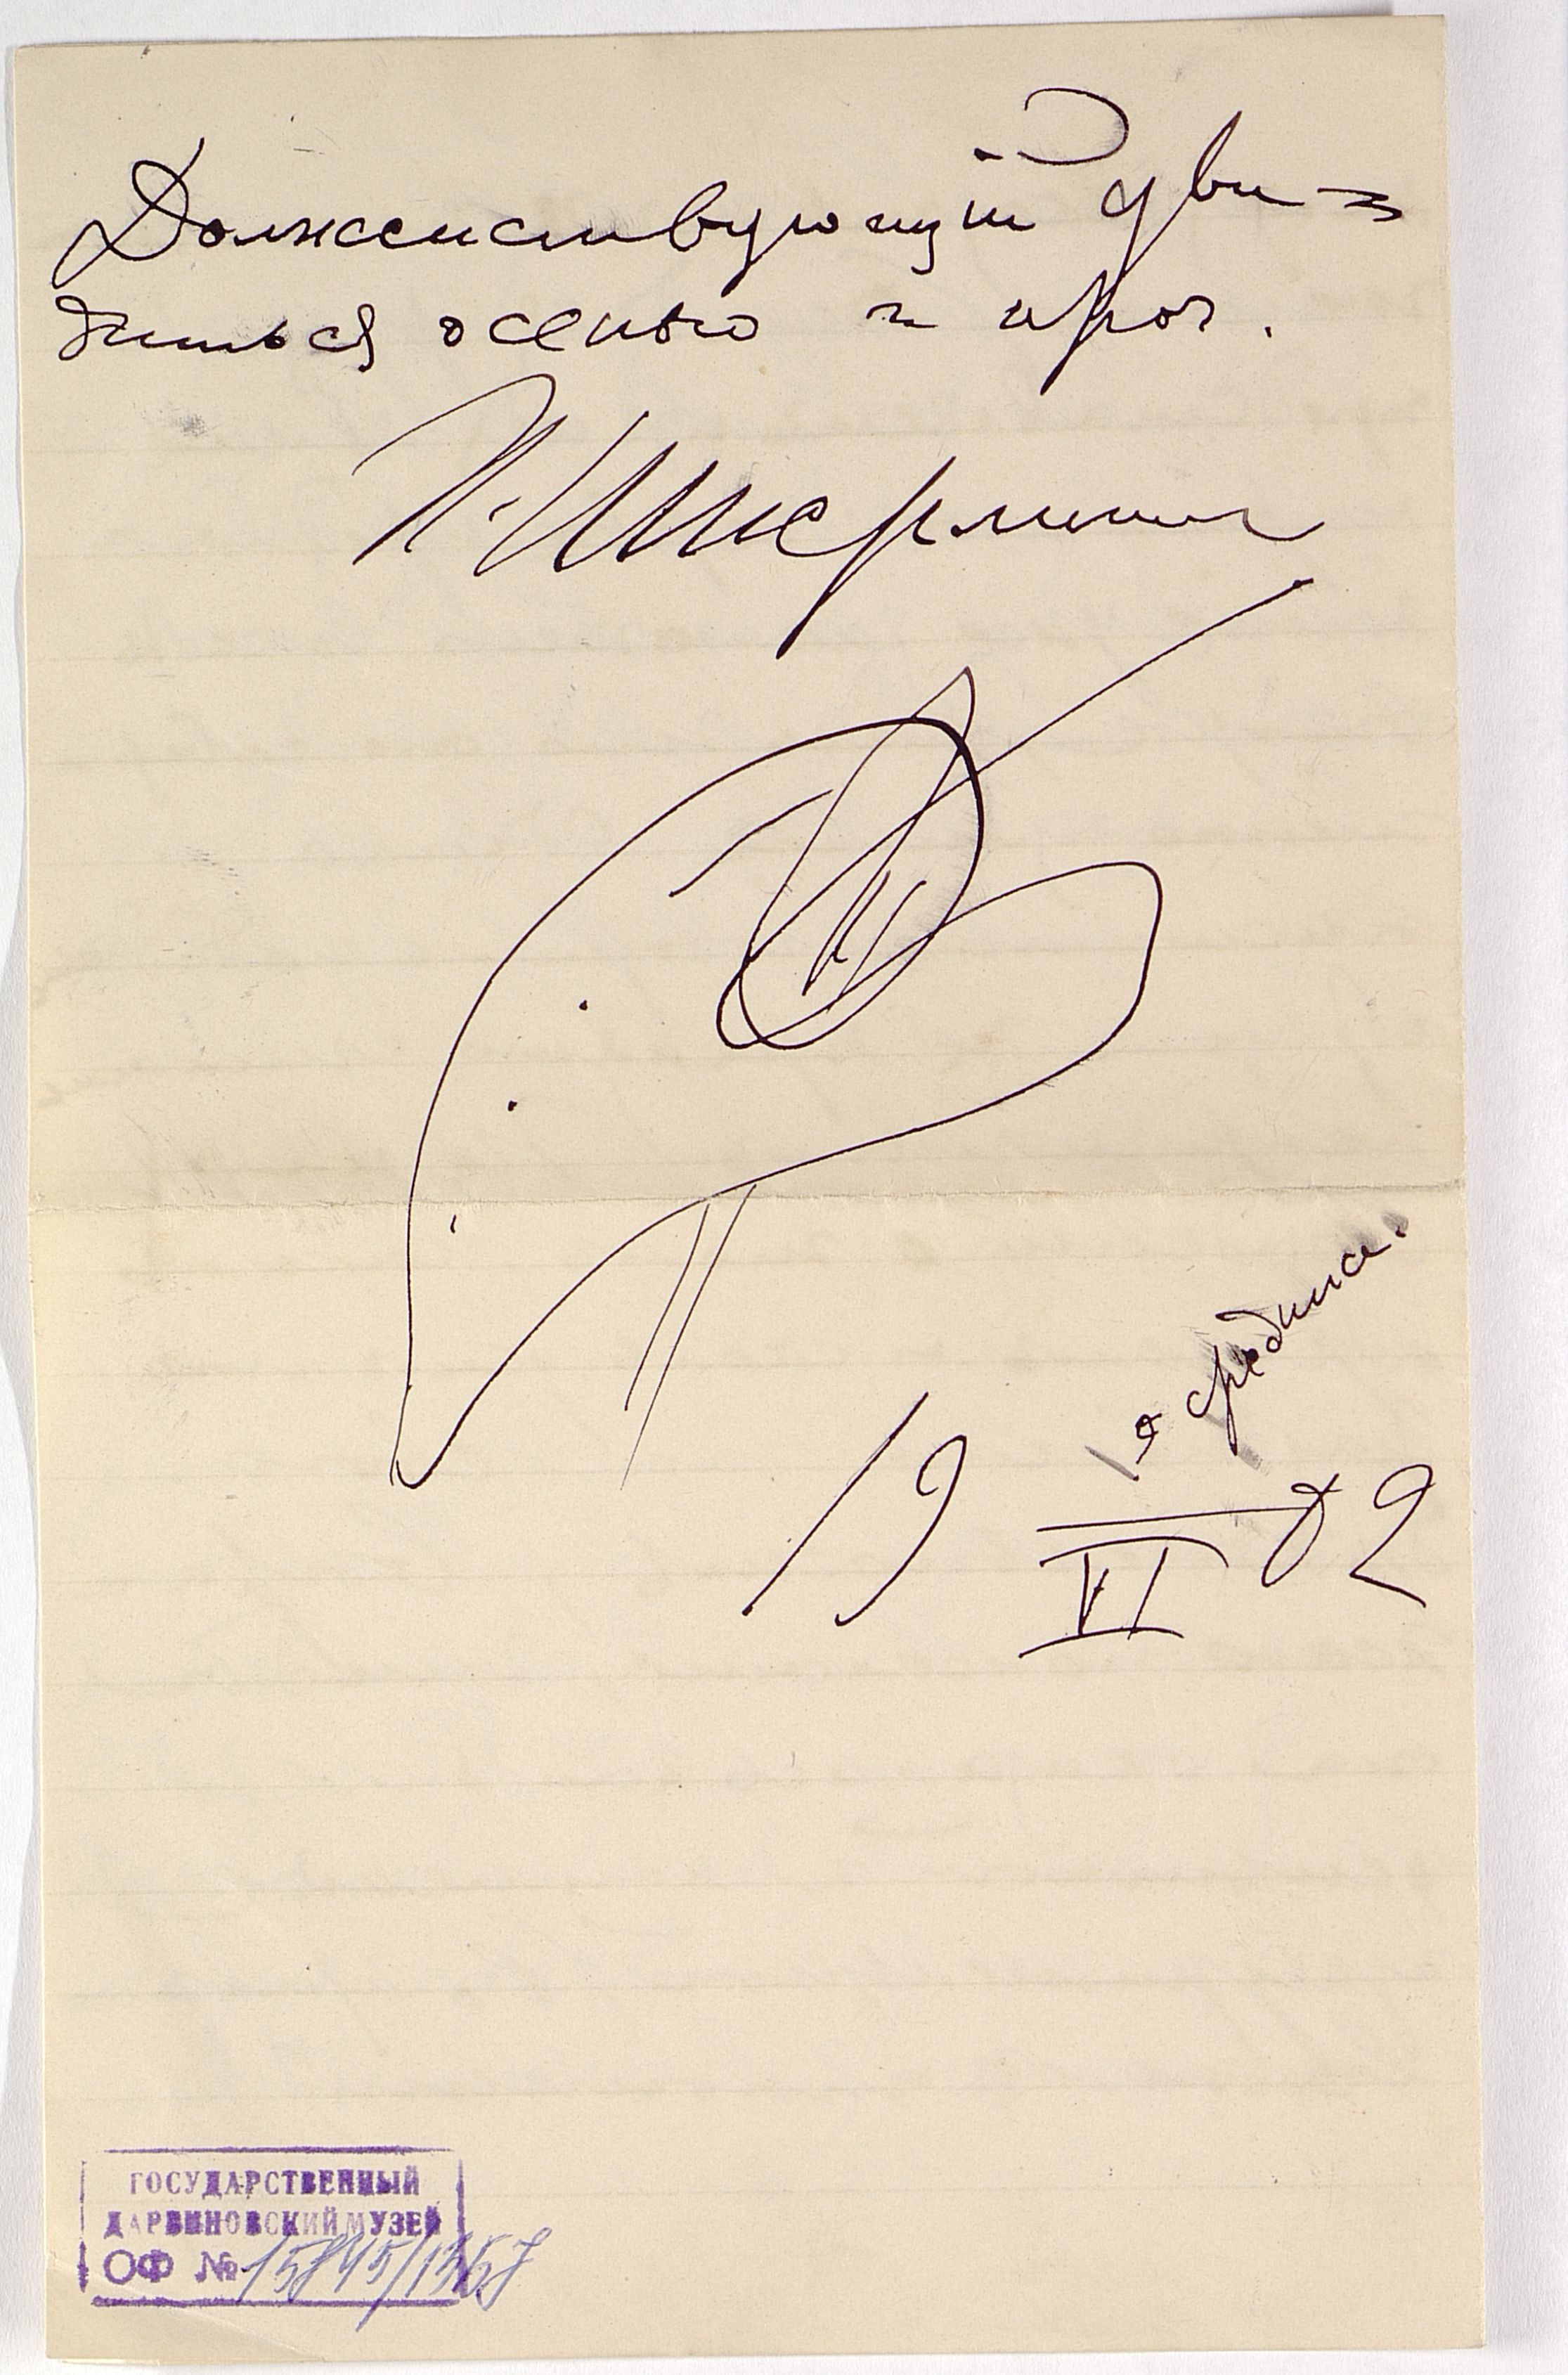 Долженствующий уви=
диться осенью и проч.
средина.
19 VI 02
ГОСУДАРСТВЕННЫЙ
ДАРВИНОВСКИЙ МУЗЕЙ
ОФ № 15845/1367